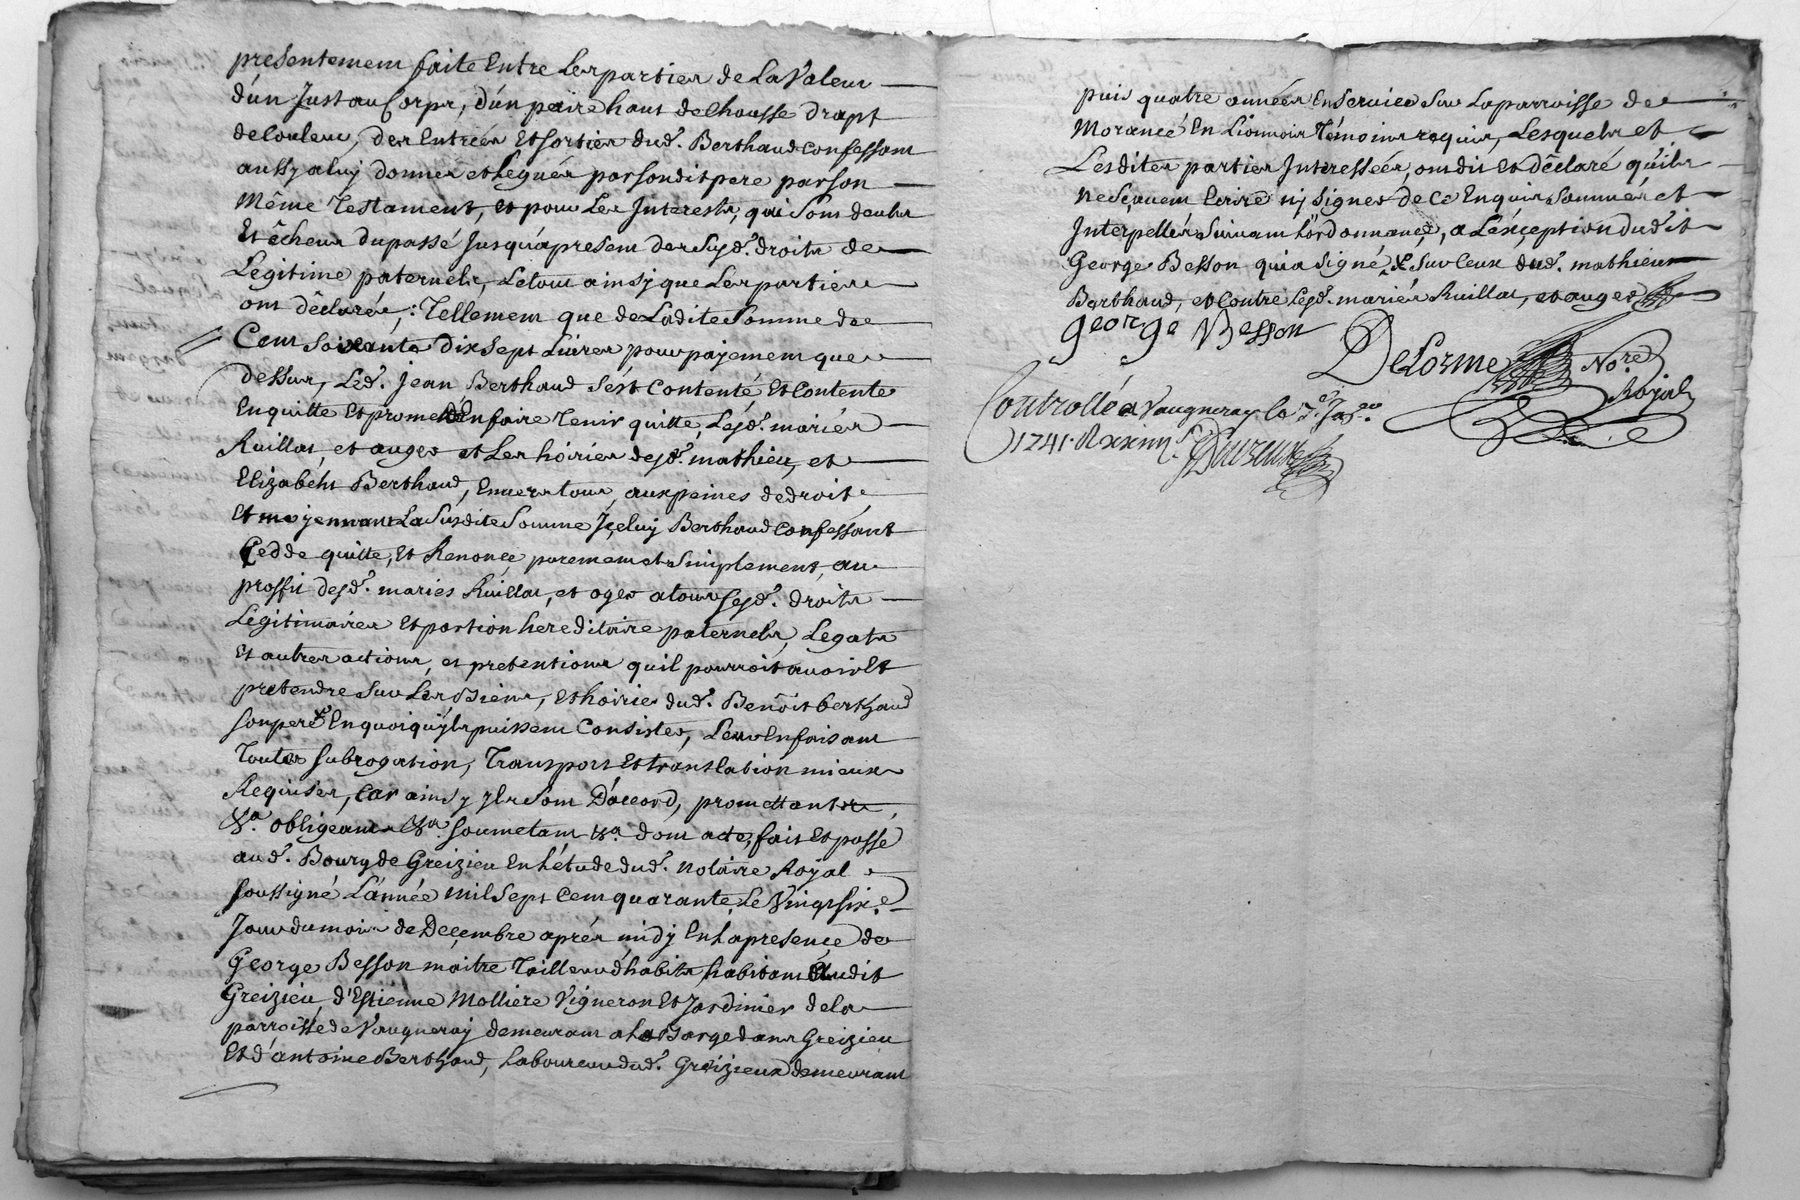 presentement faite Entre Les parties de La Valeur
d'un Just au Corps, d'un paire haut de Chausse drapt
de Couleur, des Entrées Et sorties dud. Berthaud confessant
aussy a luy donnés et Legués par sondit pere par son
Même Testament, et pour Les Interests, qui sont deubs
Et êcheus du passé Jusqu'a present des susd. droits de
Legitime paternels, Le tout ainsy que Les parties
ont dêclarés,: Tellement que de Ladite Somme de
Cent Soixante dix sept Livres pour payement que
dessus, Led. Jean Berthaud s'est Contenté, Et Contente
En quitte Et promet En faire Tenir quitte, Lesd. mariés
Ruillat, et auges et Les hoiries desd. mathieu, et
Elizabeht Berthaud, Envers tous, aux peines de droit,
Et moyennant La Susdite Somme Içeluy Berthaud confessant
Cedde quitte, Et Renonçe, purement et simplement, au
proffit desd. mariés Ruillat, et oges a tous sesd. droits
Legitimaires Et portion hereditaire paternels, Legats
Et autres actions, et pretentions quil pourroit avoir Et
pretendre Sur Les Biens, Et hoirie dud. Benôit berthaud
son pere En quoi qu'ÿls puissent Consister, Leur En faisant
Toutes subrogation, Transport Et translation mieux
Requises, Car ainsy yls Sont D'accord, promettants,
&a. obligeant &a. soumetant &a. dont acte, fait Et passé
aud. Bourg de Greizieu En L'étude dud. notaire Royal
soussigné L'année mil sept Cent quarante, Le Vingt six.e
Jour du mois de Deçembre aprés midy En La presençe de
George Besson maitre Tailleur d'habits habitant audit
Greizieu, d'Estienne Molliere Vigneron Et Jardinier de la
parroisse de Vaugneray demeurant a La Barge dans Greizieu
Et d'antoine Berthaud, Laboureur dud. Greizieux demeurant
puis quatre années En service Sur La parroisse de
Morancé En Lionnois Témoins requis, Lesquels et
Lesdites parties Interessées, ont dit et dêclaré qu'ils
ne sçavent Ecrire ny signer de Ce Enquis Sommés et
Interpellés Suivant L'ordonnançe, a L'exçeption dudit
George Besson qui a signé, & Sur Ceux dud. mathieu
Berthaud, et Contre Lesd. mariés Ruillat, et auges
george Besson
DeLorme No.re
Royal
Controllé a Vaugneray le 7.e Ja.er
1741. R xxiiij s.